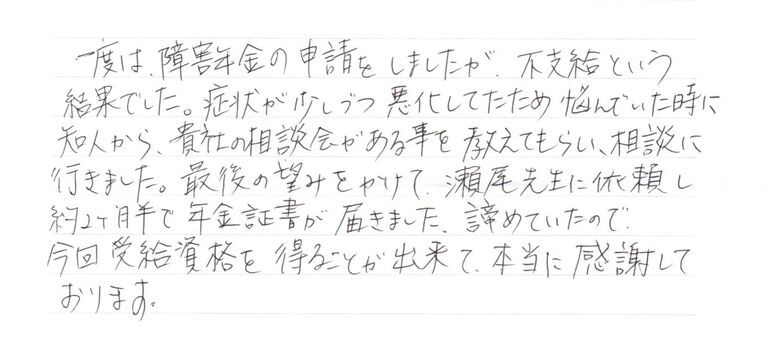 一度は、障害年金の申請をしましたが、不支給という
結果でした。症状が少しづつ悪化してたため悩んでいた時に
知人から、貴社の相談会がある事を教えてもらい、相談に
行きました。最後の望みをかけて、瀬尾先生に依頼し
約2ヶ月半で年金証書が届きました、諦めていたので、
今回受給資格を得ることが出来て、本当に感謝して
おります。